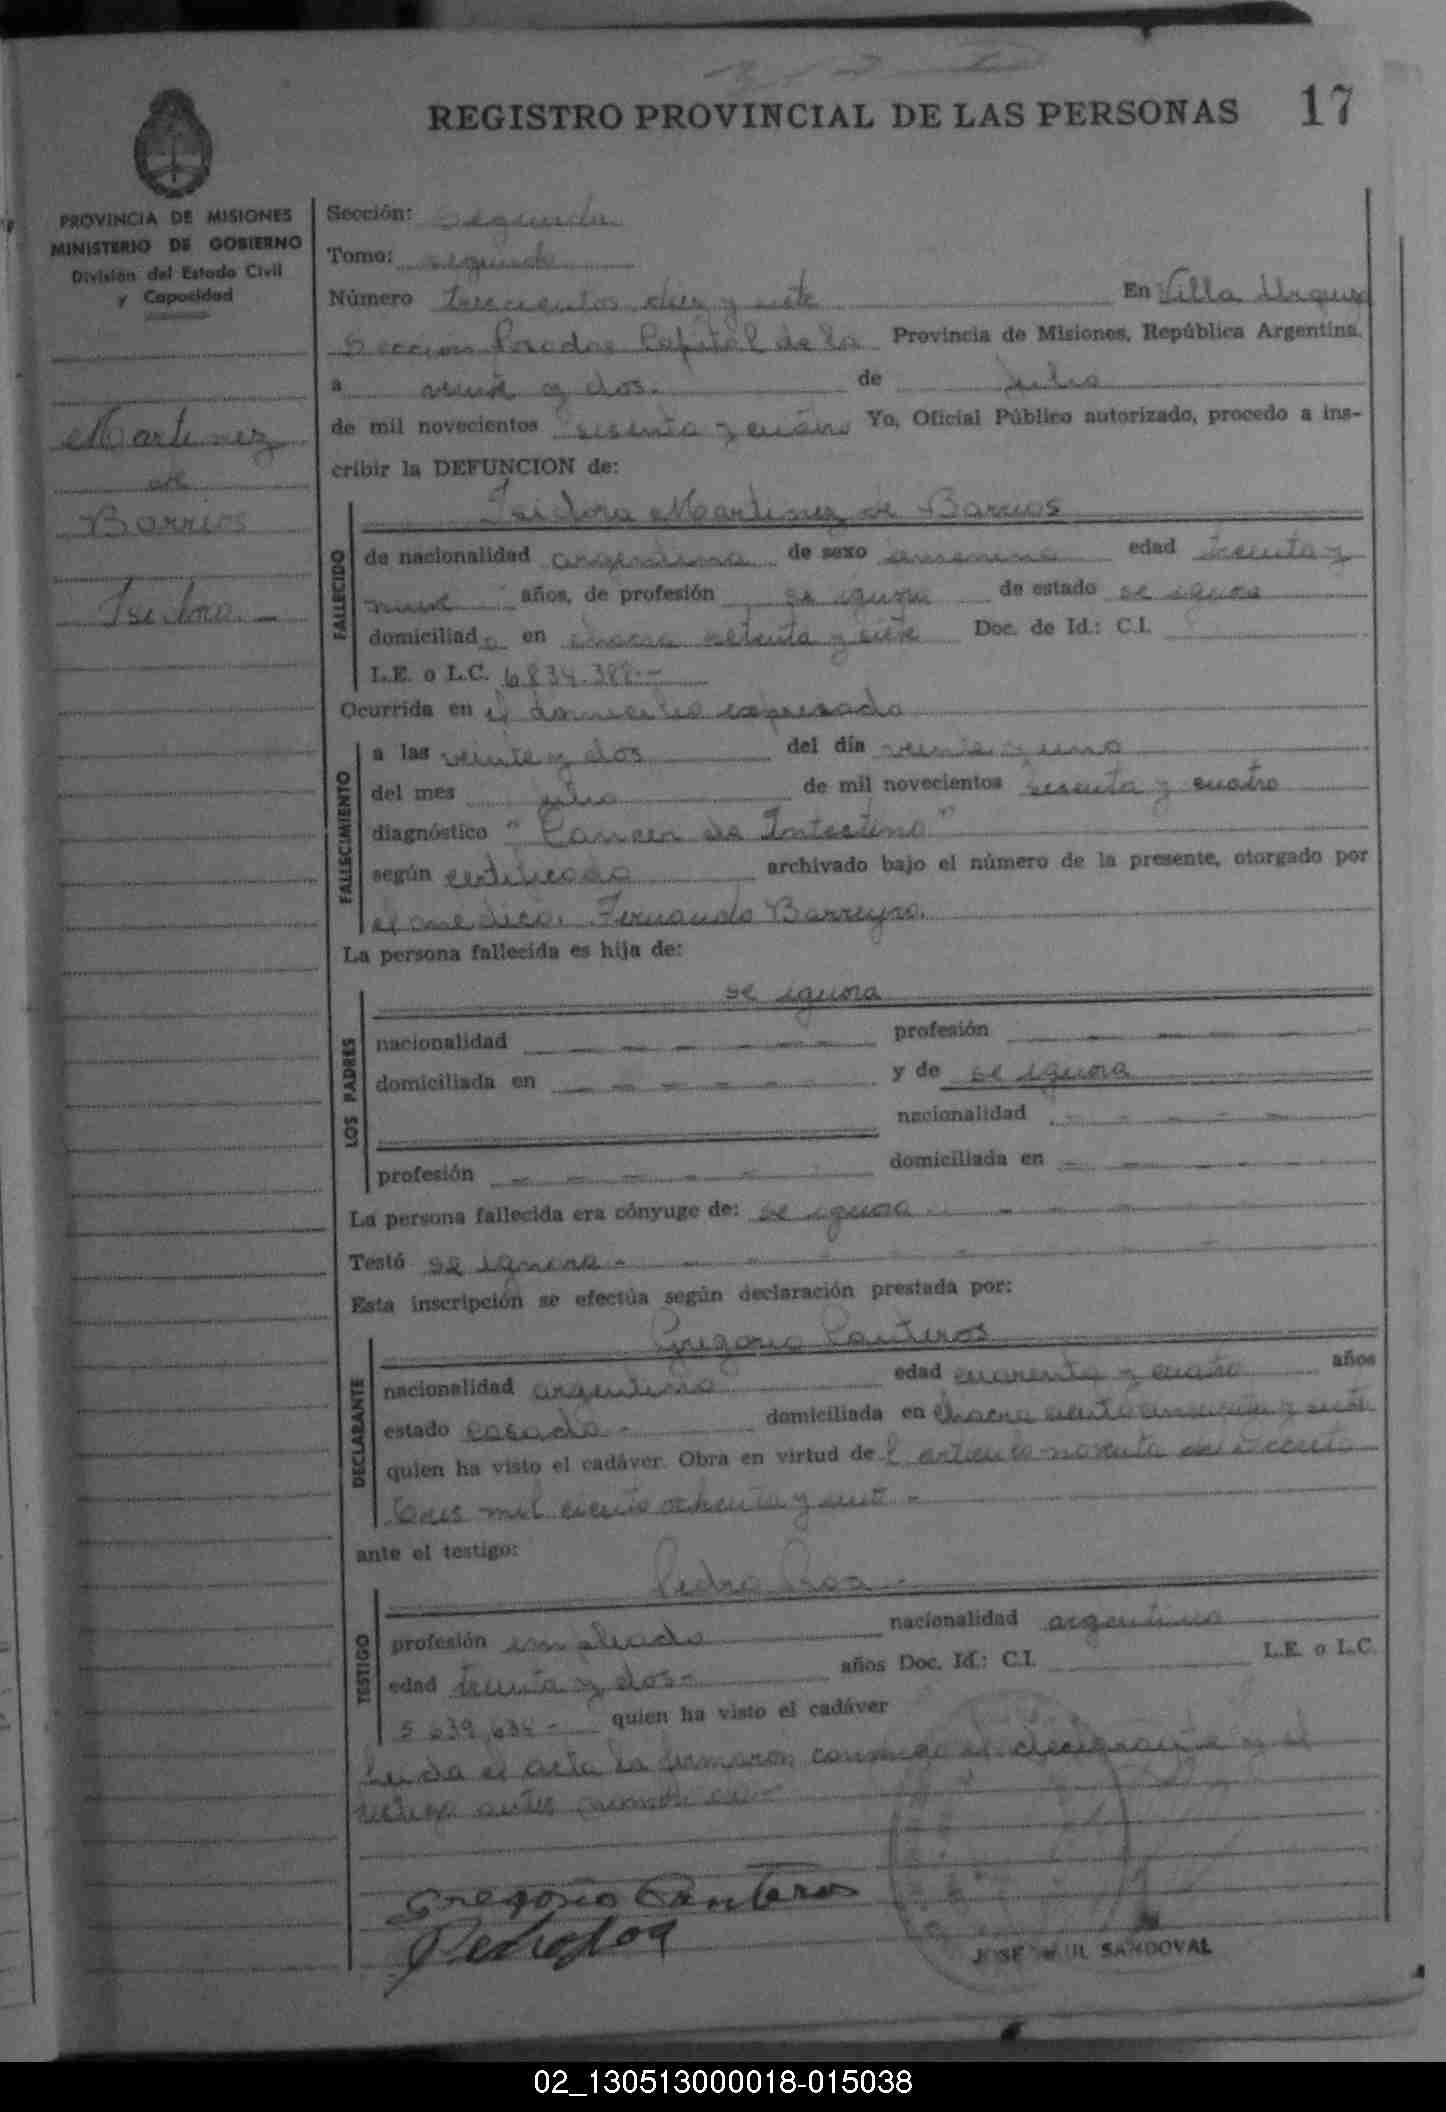 REGISTRO PROVINCIAL DE LAS PERSONAS 17
PROVINCIA DE MISIONES
MINISTERIO DE GOBIERNO
División del Estado Civil
y Capacidad
Martinez
de
Barrios
Isidora. -
Sección: Segunda
Tomo: segundo
Número trescientos diez y siete En Villa Urquiza
Seccion Posadas Capital de la Provincia de Misiones, República Argentina,
a veinte y dos. de Julio
de mil novecientos sesenta y cuatro Yo, Oficial Público autorizado, procedo a ins-
cribir la DEFUNCION de:
Isidora Martinez de Barrios
FALLECIDO
de nacionalidad argentina de sexo femenino edad treinta y
nueve años, de profesión se ignora de estado se ignora
domiciliada en chacra setenta y siete Doc. de Id.: C.I.
L.E. o L.C. 6.834.388.-
Ocurrida en el domicilio expresado
FALLECIMIENTO
a las veinte y dos del día veinte y uno
del mes julio de mil novecientos sesenta y cuatro
diagnóstico "Cancer de Intestino"
según certificado archivado bajo el número de la presente, otorgado por
el medico. Fernando Barreyro.
La persona fallecida es hija de:
se ignora
LOS PADRES
nacionalidad - - - - - profesión - - - - -
domiciliada en - - - - - y de se ignora
nacionalidad - - - - -
profesión - - - - - domiciliada en - - - - -
La persona fallecida era cónyuge de: se ignora - - - -
Testó se ignora - - - -
Esta inscripción se efectúa según declaración prestada por:
Gregorio Canteros
DECLARANTE
nacionalidad argentino edad cuarenta y cuatro años
estado casado - domiciliada en Chacra ciento cincuenta y siete
quien ha visto el cadáver. Obra en virtud del articulo noventa decreto
tres mil ciento ochenta y siete -
ante el testigo:
Pedro Roa -
TESTIGO
profesión empleado nacionalidad argentino
edad treinta y dos- años Doc. Id.: C.I. L.E. o L.C.
5.639.634 - quien ha visto el cadáver
Leida el acta la firmaron conmigo el declarante y el
testigo antes
Gregorio Canteros
Pedro Roa
JOSE RAUL SANDOVAL
02_130513000018-015038